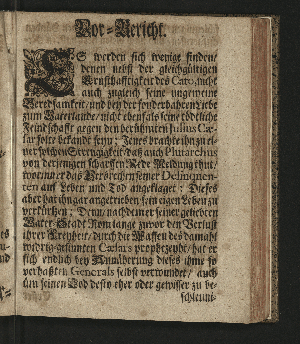 Vor-Bericht.
ES werden sich wenige finden/
denen nebst der gleichgültigen
Ernsthafftigkeit des Cato, nicht
auch zugleich seine ungemeine
Beredsamkeit/ und bey der sonderbahren Liebe
zum Vaterlande/ nicht ebenfals seine tödtliche
Feindschafft gegen den berühmten Julius Cæ-
sar solte bekandt seyn; Jenes brachte ihn zu ei-
ner solchen Strengigkeit/ daß auch Plutarchus
von derjenigen scharffen Rede Meldung thut/
worinn er das Verbrechen seiner Delinquen-
ten auf Leben und Tod angeklaget: Dieses
aber hat ihn gar angetrieben/ sein eigen Leben zu
verkürtzen; Denn/ nachdem er seiner geliebten
Vater-Stadt Rom lange zuvor den Verlust
ihrer Freyheit/ durch die Waffen des damahls
widrig-gesinnten Cæsars prophezeyht/ hat er
sich endlich bey Annäherung dieses ihme so
verhaßten Generals selbst verwundet/ auch
üm seinen Tod desto eher oder gewisser zu be-
schleuni-